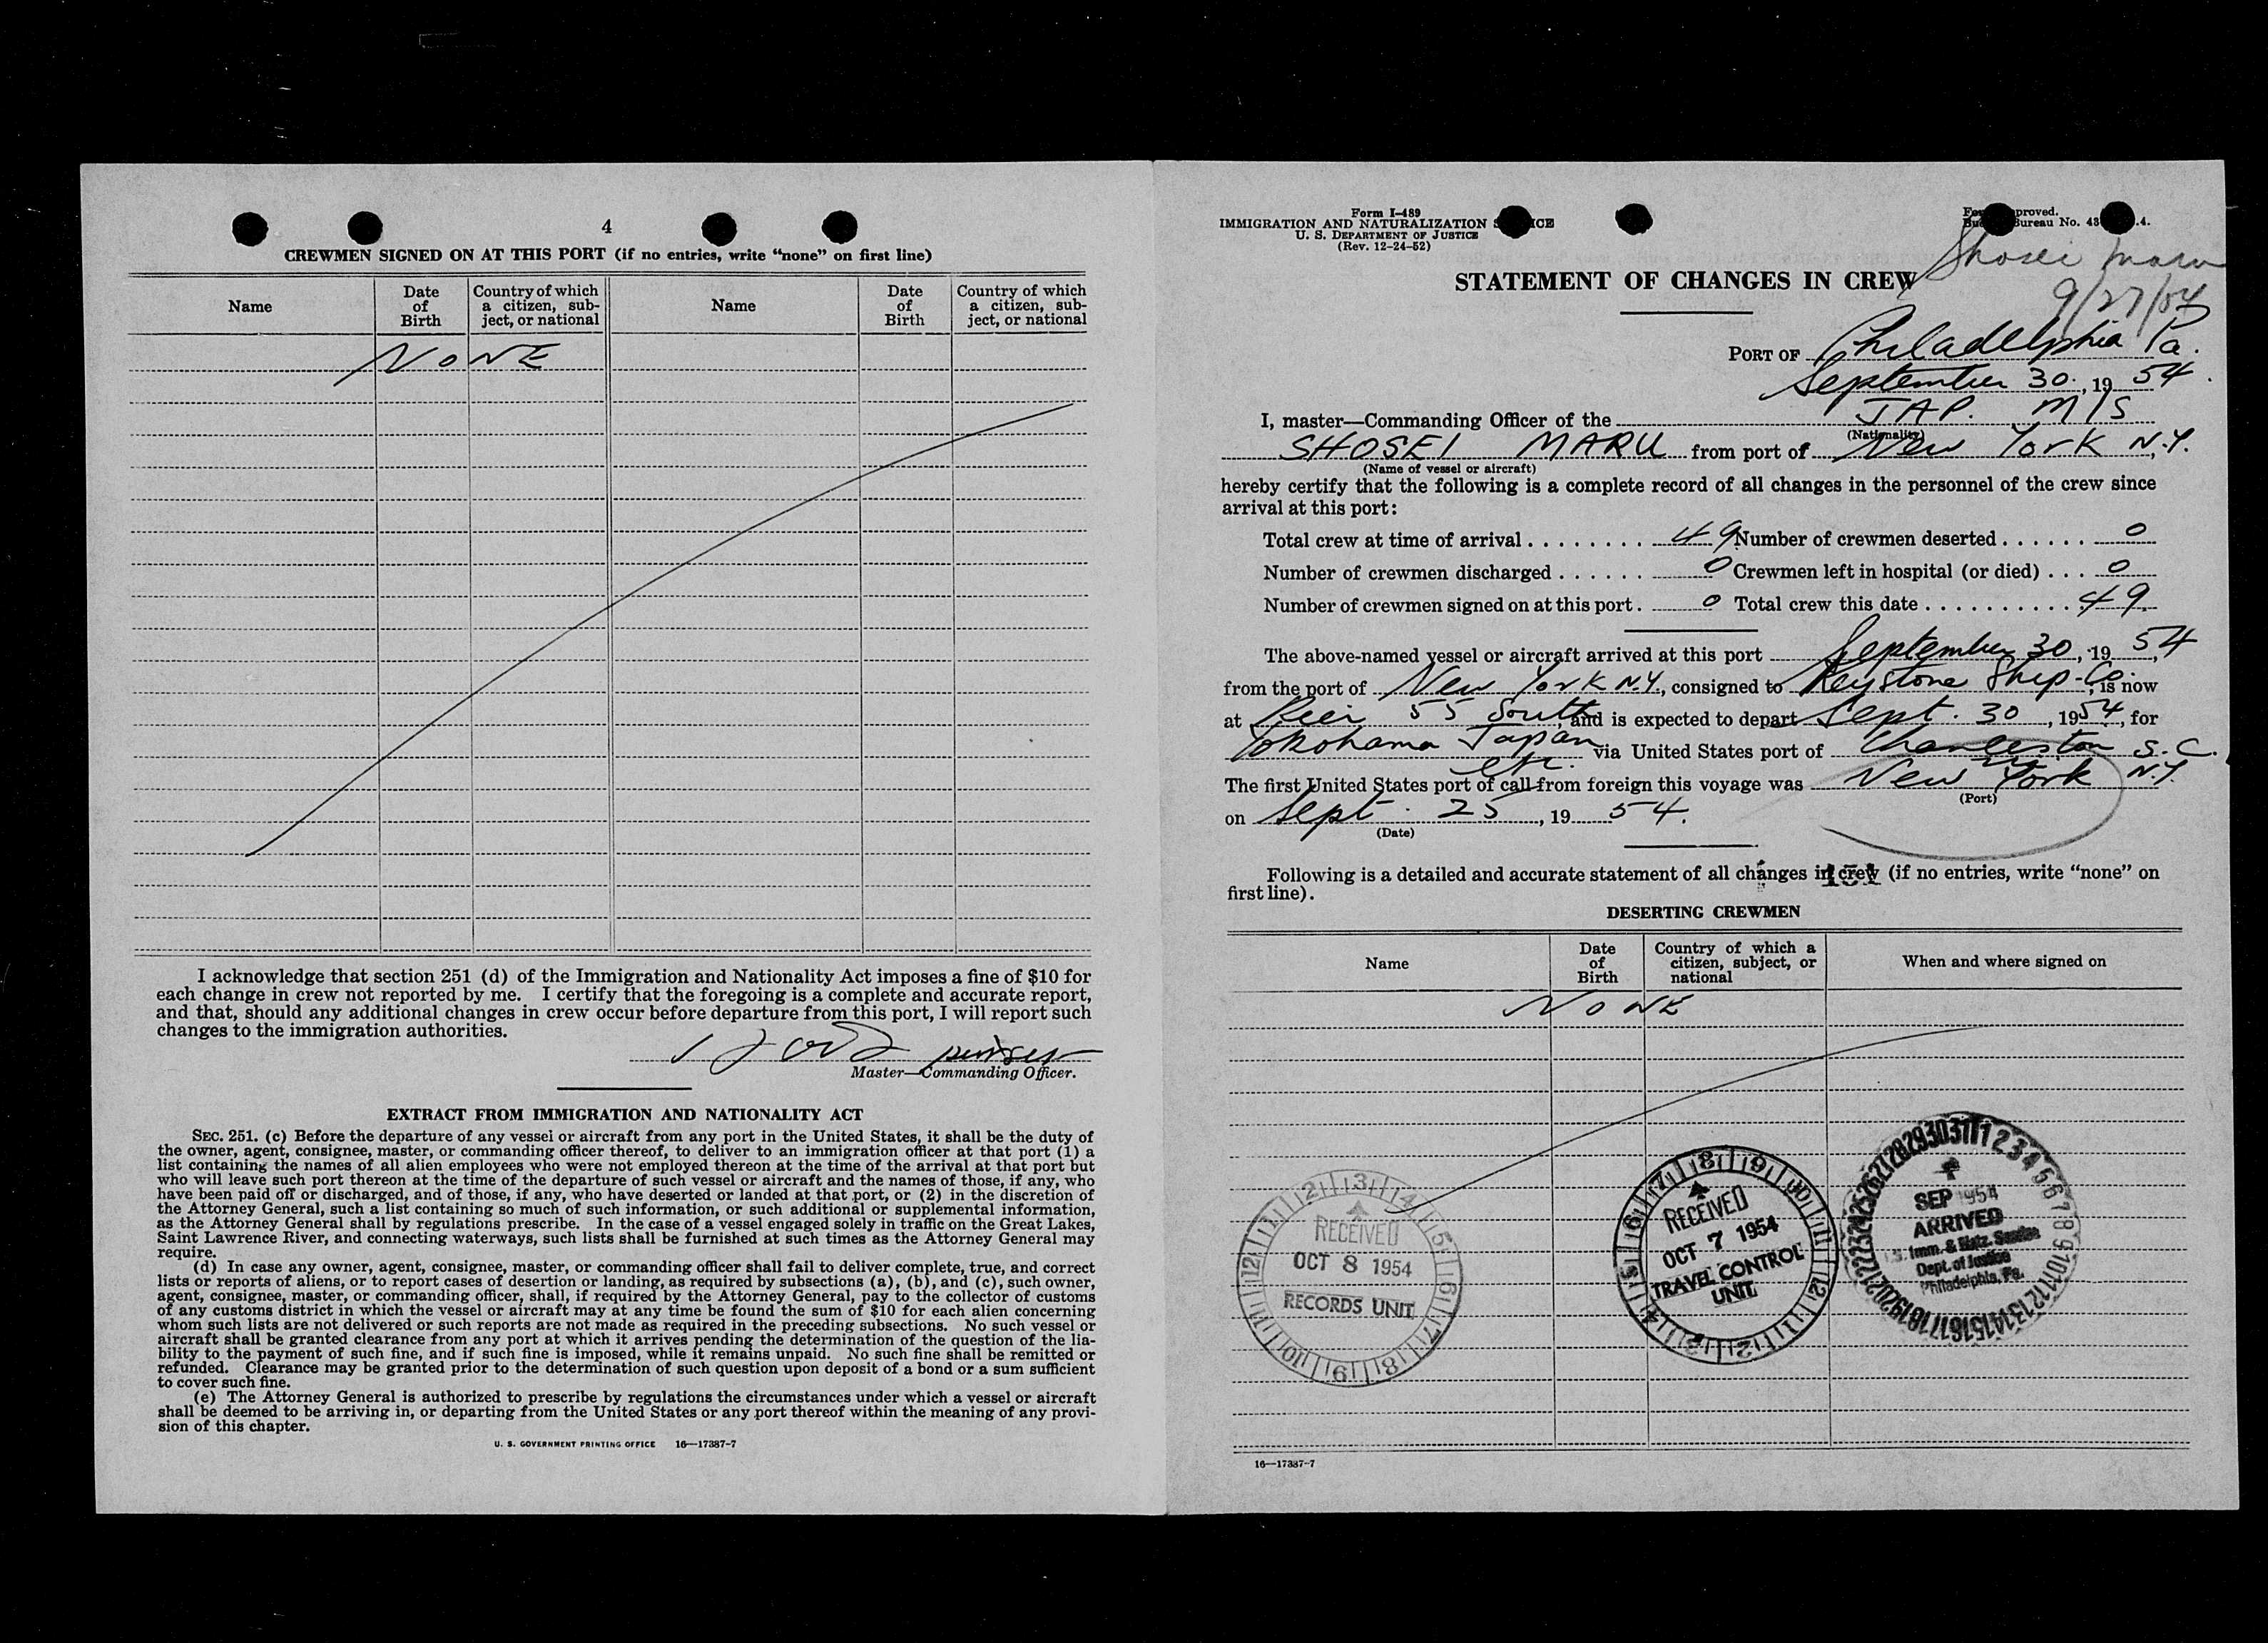 4
CREWMEN SIGNED ON AT THIS PORT (if no entries, write “none” on first line)
Name
Date of Birth
Country of which a citizen, sub-ject, or national
Name
Date of Birth
Country of which a citizen, sub-ject, or national
NONE
I acknowledge that section 251 (d) of the Immigration and Nationality Act imposes a fine of $10 for
each change in crew not reported by me. I certify that the foregoing is a complete and accurate report,
and that, should any additional changes in crew occur before departure from this port, I will report such
changes to the immigration authorities.
Master—Commanding Officer.
EXTRACT FROM IMMIGRATION AND NATIONALITY ACT
SEC. 251. (c) Before the departure of any vessel or aircraft from any port in the United States, it shall be the duty of
the owner, agent, consignee, master, or commanding officer thereof, to deliver to an immigration officer at that port (1) a
list containing the names of all alien employees who were not employed thereon at the time of the arrival at that port but
who will leave such port thereon at the time of the departure of such vessel or aircraft and the names of those, if any, who
have been paid off or discharged, and of those, if any, who have deserted or landed at that port, or (2) in the discretion of
the Attorney General, such a list containing so much of such information, or such additional or supplemental information,
as the Attorney General shall by regulations prescribe. In the case of a vessel engaged solely in traffic on the Great Lakes,
Saint Lawrence River, and connecting waterways, such lists shall be furnished at such times as the Attorney General may
require.
(d) In case any owner, agent, consignee, master, or commanding officer shall fail to deliver complete, true, and correct
lists or reports of aliens, or to report cases of desertion or landing, as required by subsections (a), (b), and (c), such owner,
agent, consignee, master, or commanding officer, shall, if required by the Attorney General, pay to the collector of customs
of any customs district in which the vessel or aircraft may at any time be found the sum of $10 for each alien concerning
whom such lists are not delivered or such reports are not made as required in the preceding subsections. No such vessel or
aircraft shall be granted clearance from any port at which it arrives pending the determination of the question of the lia-
bility to the payment of such fine, and if such fine is imposed, while it remains unpaid. No such fine shall be remitted or
refunded. Clearance may be granted prior to the determination of such question upon deposit of a bond or a sum sufficient
to cover such fine.
(e) The Attorney General is authorized to prescribe by regulations the circumstances under which a vessel or aircraft
shall be deemed to be arriving in, or departing from the United States or any port thereof within the meaning of any provi-
sion of this chapter.
U. S. GOVERNMENT PRINTING OFFICE 16—17387-7
Form I-489
IMMIGRATION AND NATURALIZATION
U. S. DEPARTMENT OF JUSTICE
(Rev. 12-24-52)
Bureau No. 43
Shosei Maru
9/27/54
STATEMENT OF CHANGES IN CREW
PORT OF Philadelphia Pa.
September 30, 1954.
I, master—Commanding Officer of the JAP. M/S
(Nationality)
SHOSEI MARU from port of New York N.Y.
(Name of vessel or aircraft)
hereby certify that the following is a complete record of all changes in the personnel of the crew since
arrival at this port:
Total crew at time of arrival ........ 49 Number of crewmen deserted ...... 0
Number of crewmen discharged ...... 0 Crewmen left in hospital (or died) ... 0
Number of crewmen signed on at this port. 0 Total crew this date .......... 49
The above-named vessel or aircraft arrived at this port September 30, 1954
from the port of New York N.Y., consigned to Keystone Ship. Co., is now
at Pier 55 South and is expected to depart Sept. 30, 1954, for
Yokohama Japan etc. via United States port of Charleston S.C.
The first United States port of call from foreign this voyage was New York N.Y.
(Port)
on Sept. 25, 1954.
(Date)
Following is a detailed and accurate statement of all changes in crew (if no entries, write “none” on
first line).
DESERTING CREWMEN
Name
Date of Birth
Country of which a citizen, subject, or national
When and where signed on
NONE
RECEIVED
OCT 8 1954
RECORDS UNIT
RECEIVED
OCT 7 1954
TRAVEL CONTROL
UNIT
SEP 1954
ARRIVED
Imm. & Natz. Service
Dept. of Justice
Philadelphia, Pa.
16—17387-7